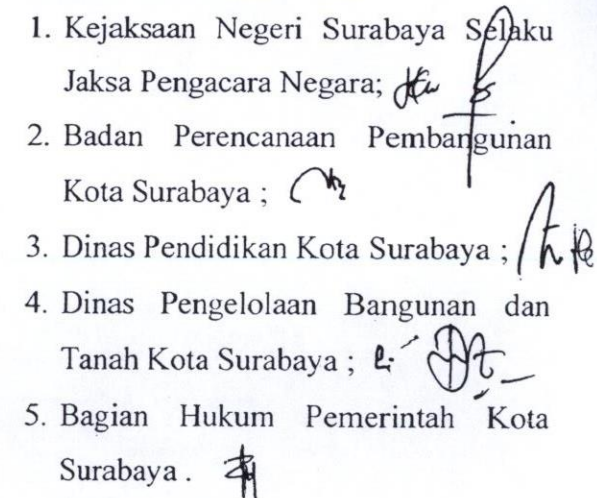 1. Kejaksaan Negeri Surabaya Selaku
Jaksa Pengacara Negara;
2. Badan Perencanaan Pembangunan
Kota Surabaya ;
3. Dinas Pendidikan Kota Surabaya ;
4. Dinas Pengelolaan Bangunan dan
Tanah Kota Surabaya ;
5. Bagian Hukum Pemerintah Kota
Surabaya .